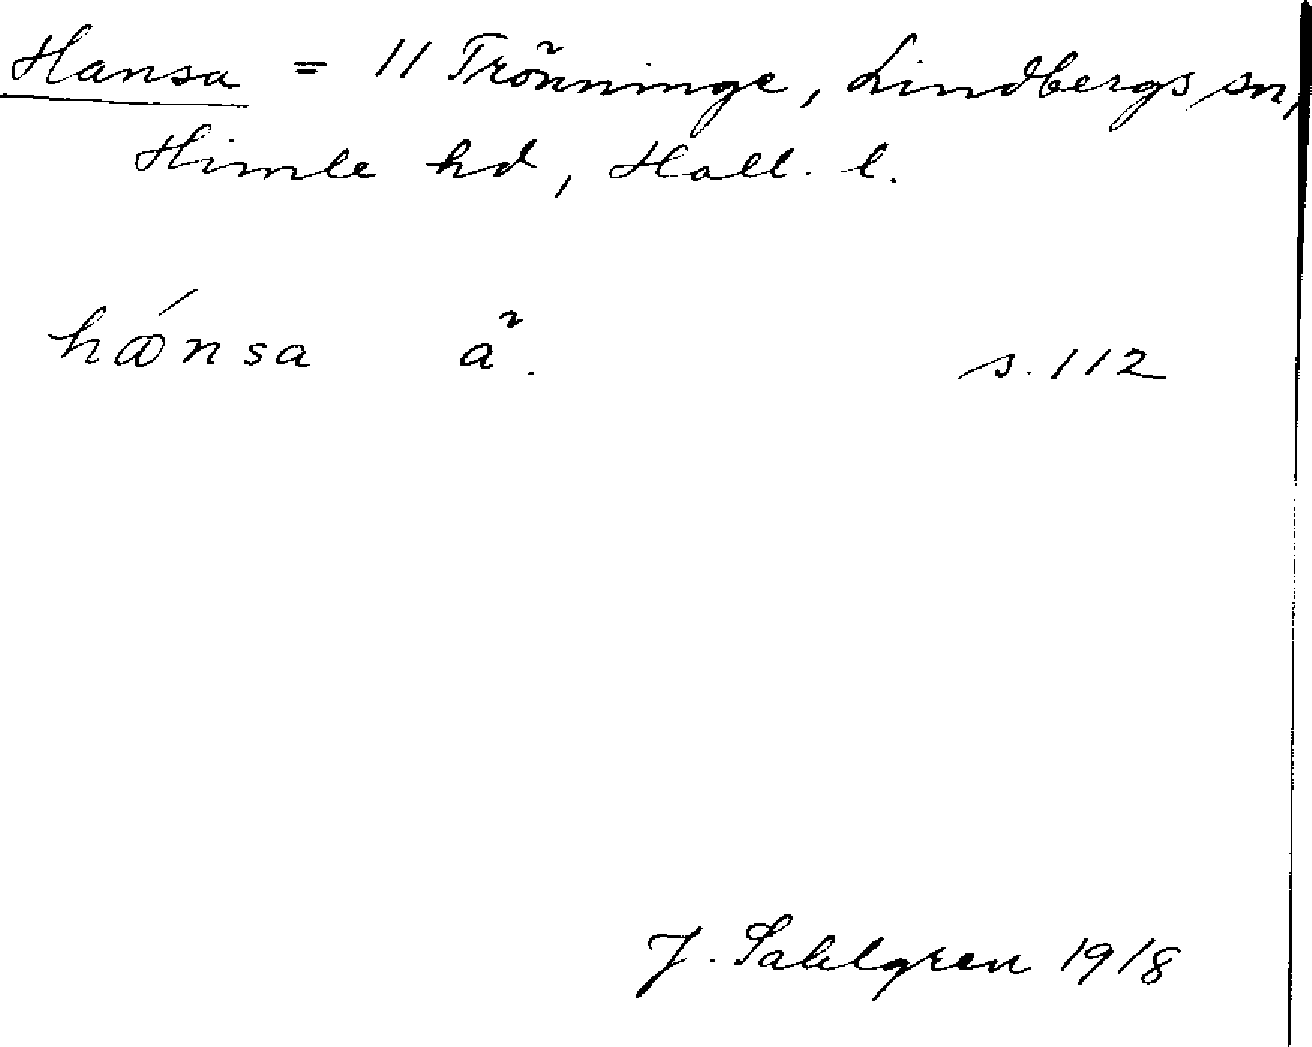 Hansa = 11 Trönninge, Lindbergs sn,
Himle hd, Hall. l.
hǿnsa ã. s. 112
J. Sahlgren 1918